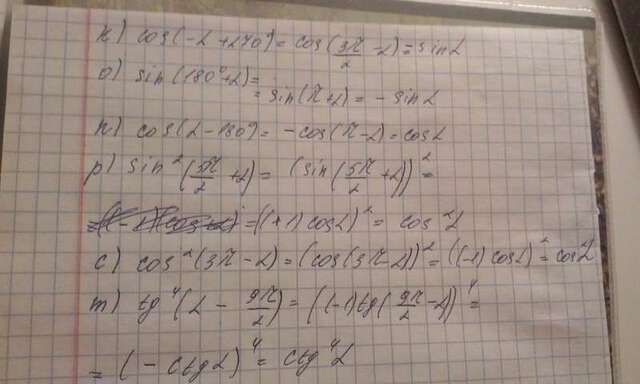 н) cos(-α+270°) = cos(3π/2 - α) = sinα
о) sin(180°+α) =
= sin(π+α) = - sinα
п) cos(α-180°) = -cos(π-α) = cosα
р) sin²(5π/2 + α) = (sin(5π/2 + α))² =
= ((+1) cosα)² = cos²α
с) cos²(3π-α) = (cos(3π-α))² = ((-1) cosα)² = cos²α
т) tg⁴(α - 9π/2) = ((-1) tg(9π/2 - α))⁴ =
= (- ctgα)⁴ = ctg⁴α